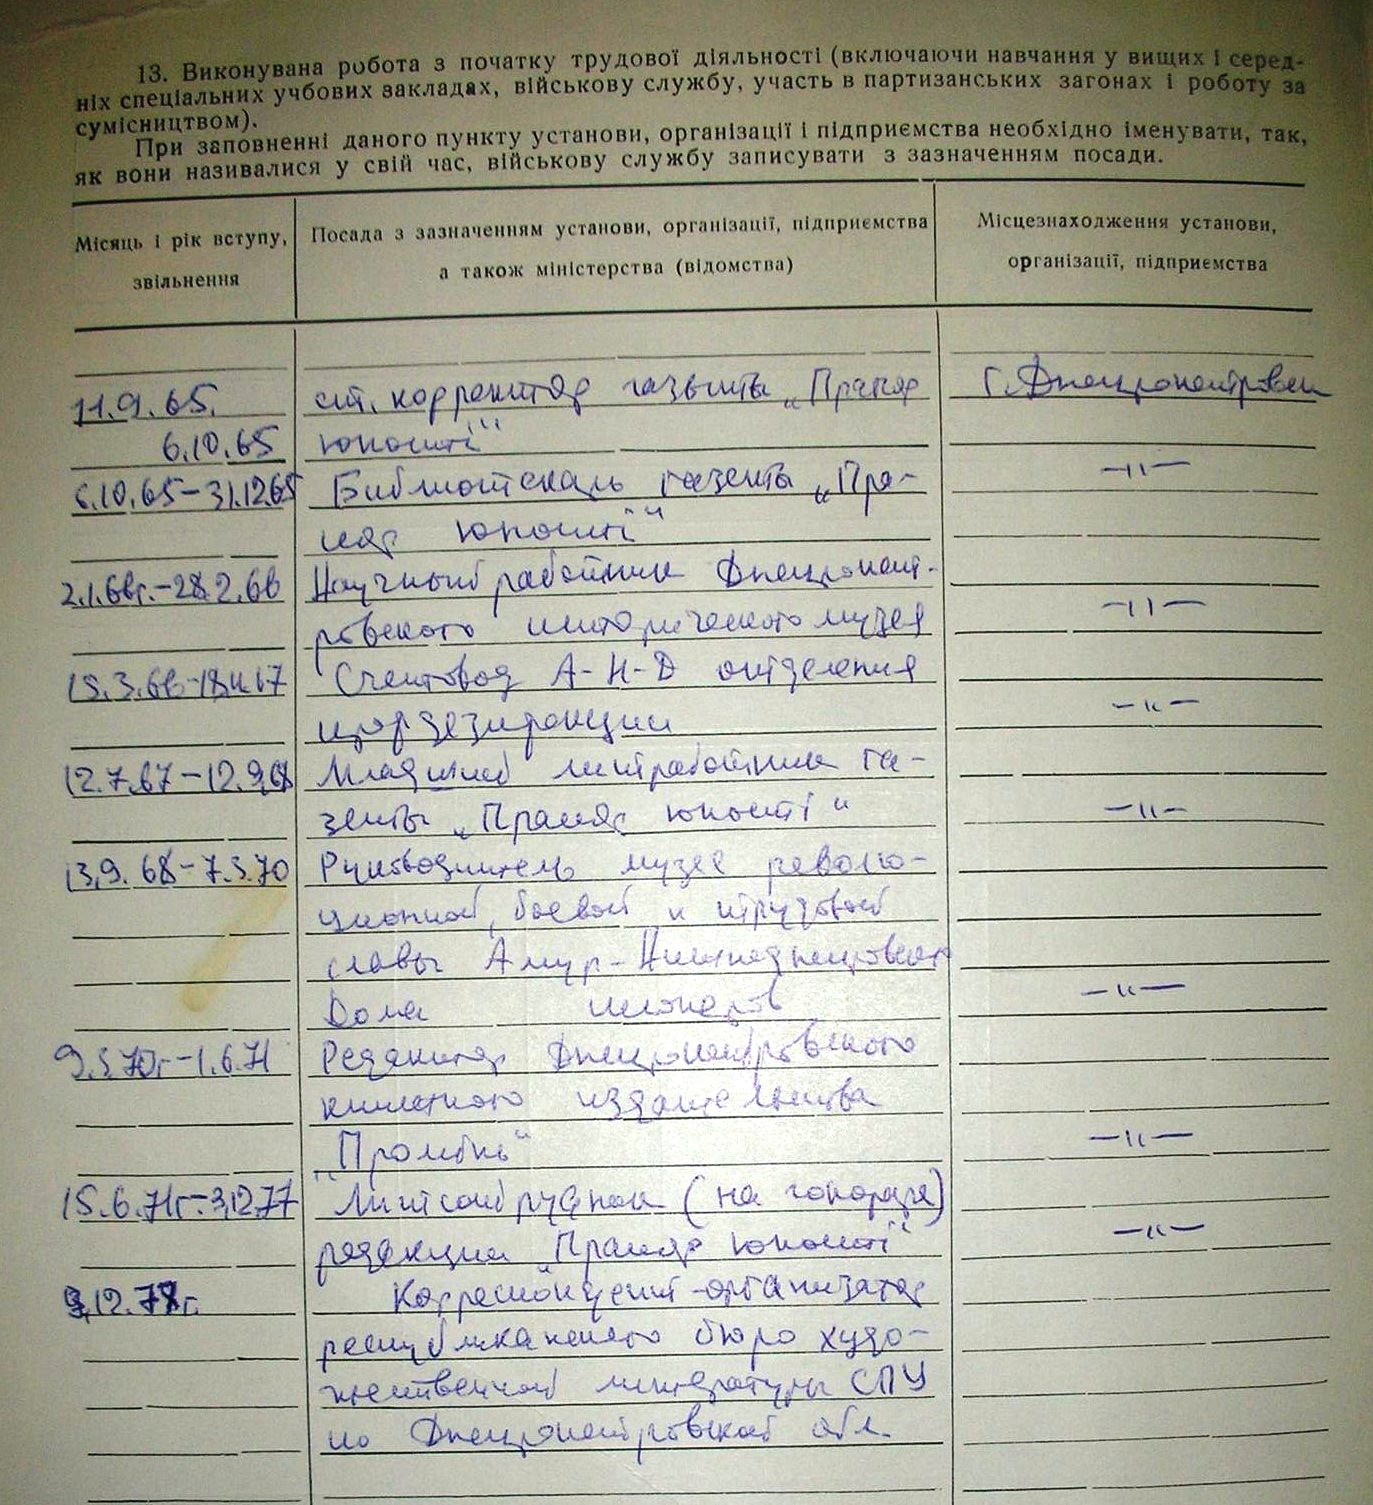 13. Виконувана робота з початку трудової діяльності (включаючи навчання у вищих і серед-
ніх спеціальних учбових закладах, військову службу, участь в партизанських загонах і роботу за
сумісництвом).
При заповненні даного пункту установи, організації і підприємства необхідно іменувати, так,
як вони називалися у свій час, військову службу записувати з зазначенням посади.
Місяць і рік вступу,
звільнення
Посада з зазначенням установи, організації, підприємства
а також міністерства (відомства)
Місцезнаходження установи,
організації, підприємства
11.9.65. ст. корректор газеты „Прапор г. Днепропетровск
6.10.65 юності"
6.10.65–31.12.65 Библиотекарь газеты „Пра- –"–
пор юності"
2.1.66г.–28.2.66 Научный работник Днепропет-
ровского исторического музея –"–
15.3.66– Счетовод А-Н-Д отделения
профдезинфекции –"–
12.7.67–12.9.68 Младший литработник га-
зеты „Прапор юності" –"–
13.9.68–7.3.70 Руководитель музея револю-
ционной, боевой и трудовой
славы Амур-Нижнеднепровского
Дома пионеров –"–
9.3.70г–1.6.71 Редактор Днепропетровского
книжного издательства
„Промінь" –"–
15.6.71г–3.12.77 Литсотрудник (на гонораре)
редакции „Прапор юності" –"–
Корреспондент-организатор
республиканского бюро худо-
жественной литературы СПУ
по Днепропетровской обл.